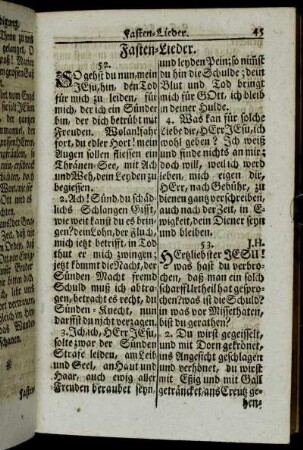 Fasten-Lieder. 45
Fasten-Lieder.
52.
SO gehst du nun, mein
JEsu, hin, den Tod
für mich zu leiden, für
mich, der ich ein Sünder
bin, der dich betrübt mit
Freuden. Wolan! fahr
fort, du edler Hort! mein
Augen sollen fliessen ein
Thränen-See, mit Ach
und Weh, dein Leyden zu
begiessen.
2. Ach! Sünd, du schäd-
lichs Schlangen-Gifft,
wie weit kanst du es brin-
gen? dein Lohn, der Fluch,
mich jetzt betrifft, in Tod
thut er mich zwingen;
jetzt kommt die Nacht, der
Sünden Macht fremde
Schuld muß ich abtra-
gen, betracht es recht, du
Sünden-Knecht, nun
darffst du nicht verzagen.
3. Ich, ich, HErr JEsu,
solte zwar der Sünden
Strafe leiden, am Leib
und Seel, an Haut und
Haar, auch ewig aller
Freuden beraubet seyn,
und leyden Pein; so nimst
du hin die Schulde; dein
Blut und Tod bringt
mich für GOtt, ich bleib
in deiner Hulde.
4. Was kan für solche
Liebe dir, HErr JEsu, ich
wohl geben? Ich weiß
und finde nichts an mir;
doch will, weil ich werd
leben, mich eigen dir,
HErr, nach Gebühr, zu
dienen gantz verschreiben,
auch nach der Zeit, in E-
wigkeit, dein Diener seyn
und bleiben.
53. J.H.
HErtzliebster JESU!
was hast du verbro-
chen, daß man ein solch
scharff Urtheil hat gespro-
chen? was ist die Schuld?
in was vor Missethaten,
bist du gerathen?
2. Du wirst gegeisselt,
und mit Dorn gekrönet,
ins Angesicht geschlagen
und verhönet, du wirst
mit Eßig und mit Gall
geträncket, ans Creutz ge-
hen-